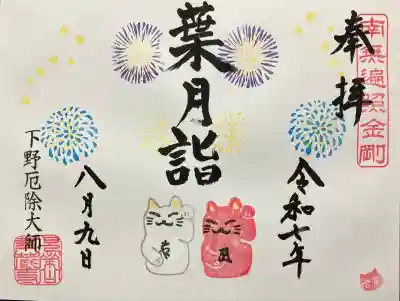 奉拝
南無遍照金剛
令和七年
葉月詣
八月九日
下野厄除大師
吉
凶